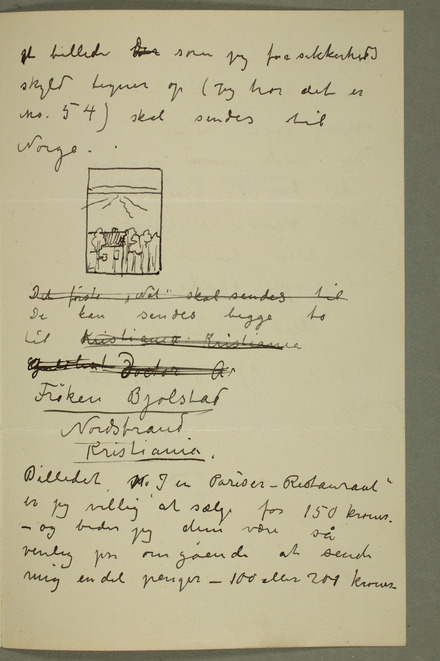 et billede som jeg for sikkerheds
skyld tegner op (Jeg tror det er
no. 54) skal sendes til
Norge.
Det første „Nat" skal sendes til
De kan sendes begge to
til Kristiania Kristiania
Doctor A
Fröken Bjolstad
Nordstrand
Kristiania.
Billedet „I en Pariser-Restaurant"
er jeg villig at sælge for 150 kroner.
– og beder jeg dem være så
venlig pr omgående at sende
mig en del penger – 100 eller 200 kroner